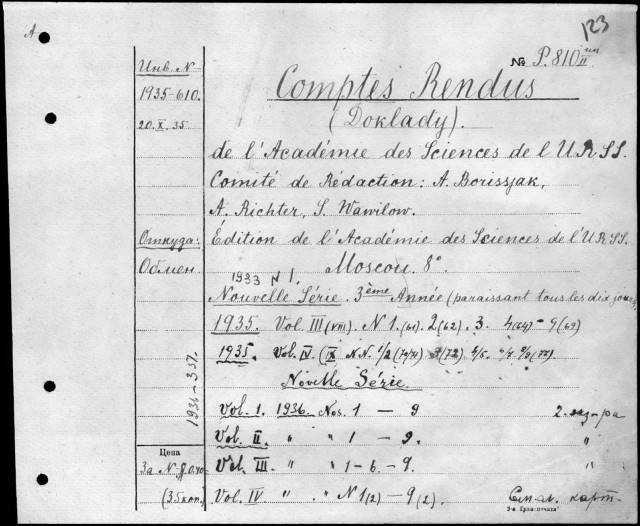 123
A
№ P.810 II
Инв. N
1935-610.
20.X.35
Comptes Rendus
(Doklady).
de l'Académie des Sciences de l'URSS.
Comité de Rédaction: A. Borissjak,
A. Richter, S. Wawilow.
Откуда: Edition de l'Académie des Sciences de l'URSS.
Обмен. Moscou. 8°
1933 N 1.
Nouvelle Série. 3ème Année (paraissant tous les dix jours)
1935. Vol. III (VIII). N 1.(61). 2(62). 3. 4(64) - 9(69)
1935. Vol. IV. (IX) N.N. 1/2
Novelle Série.
1936-351.
Vol. 1. 1936. Nos. 1 - 9 2. экз-ра
Vol. II. " " 1 - 9. "
Цена
За N
Vol. III. " " 1-6.-9. "
(35 коп.) Vol. IV " " N 1(2) - 9(2). См. карт.